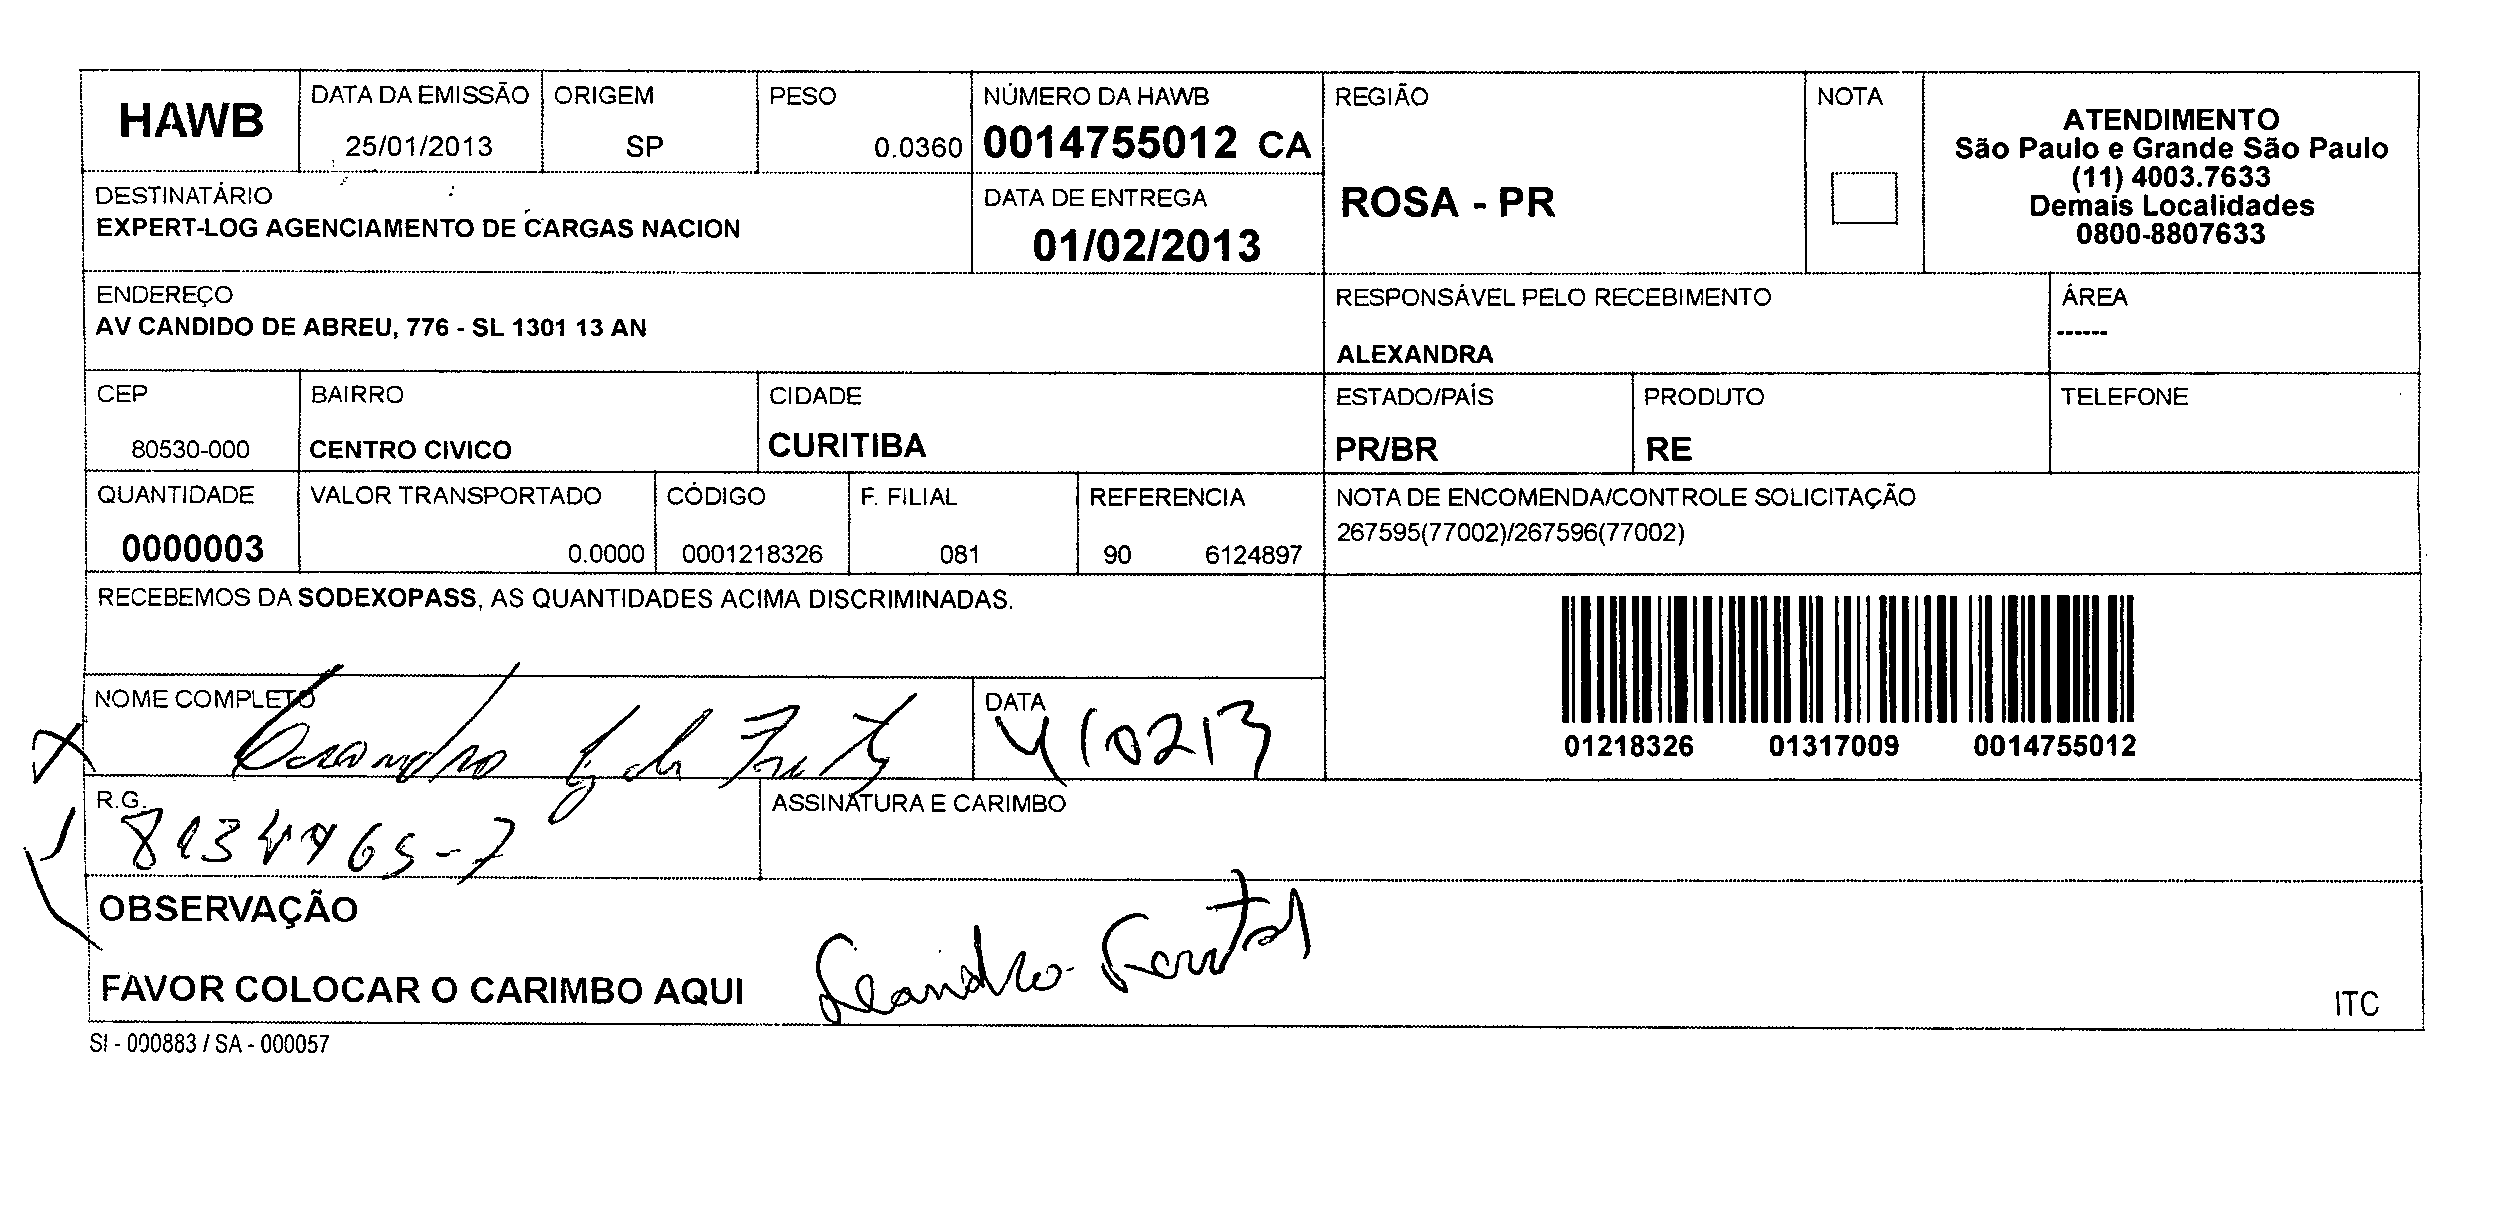 HAWB
DATA DA EMISSÃO
25/01/2013
ORIGEM
SP
PESO
0.0360
NÚMERO DA HAWB
0014755012 CA
REGIÃO
ROSA - PR
NOTA
ATENDIMENTO
São Paulo e Grande São Paulo
(11) 4003.7633
Demais Localidades
0800-8807633
DESTINATÁRIO
EXPERT-LOG AGENCIAMENTO DE CARGAS NACION
DATA DE ENTREGA
01/02/2013
ENDEREÇO
AV CANDIDO DE ABREU, 776 - SL 1301 13 AN
RESPONSÁVEL PELO RECEBIMENTO
ALEXANDRA
ÁREA
------
CEP
80530-000
BAIRRO
CENTRO CIVICO
CIDADE
CURITIBA
ESTADO/PAÍS
PR/BR
PRODUTO
RE
TELEFONE
QUANTIDADE
0000003
VALOR TRANSPORTADO
0.0000
CÓDIGO
0001218326
F. FILIAL
081
REFERENCIA
90 6124897
NOTA DE ENCOMENDA/CONTROLE SOLICITAÇÃO
267595(77002)/267596(77002)
RECEBEMOS DA SODEXOPASS, AS QUANTIDADES ACIMA DISCRIMINADAS.
01218326 01317009 0014755012
NOME COMPLETO
Leandro
DATA
R.G.
ASSINATURA E CARIMBO
OBSERVAÇÃO
Leandro
FAVOR COLOCAR O CARIMBO AQUI
ITC
SI - 000883 / SA - 000057